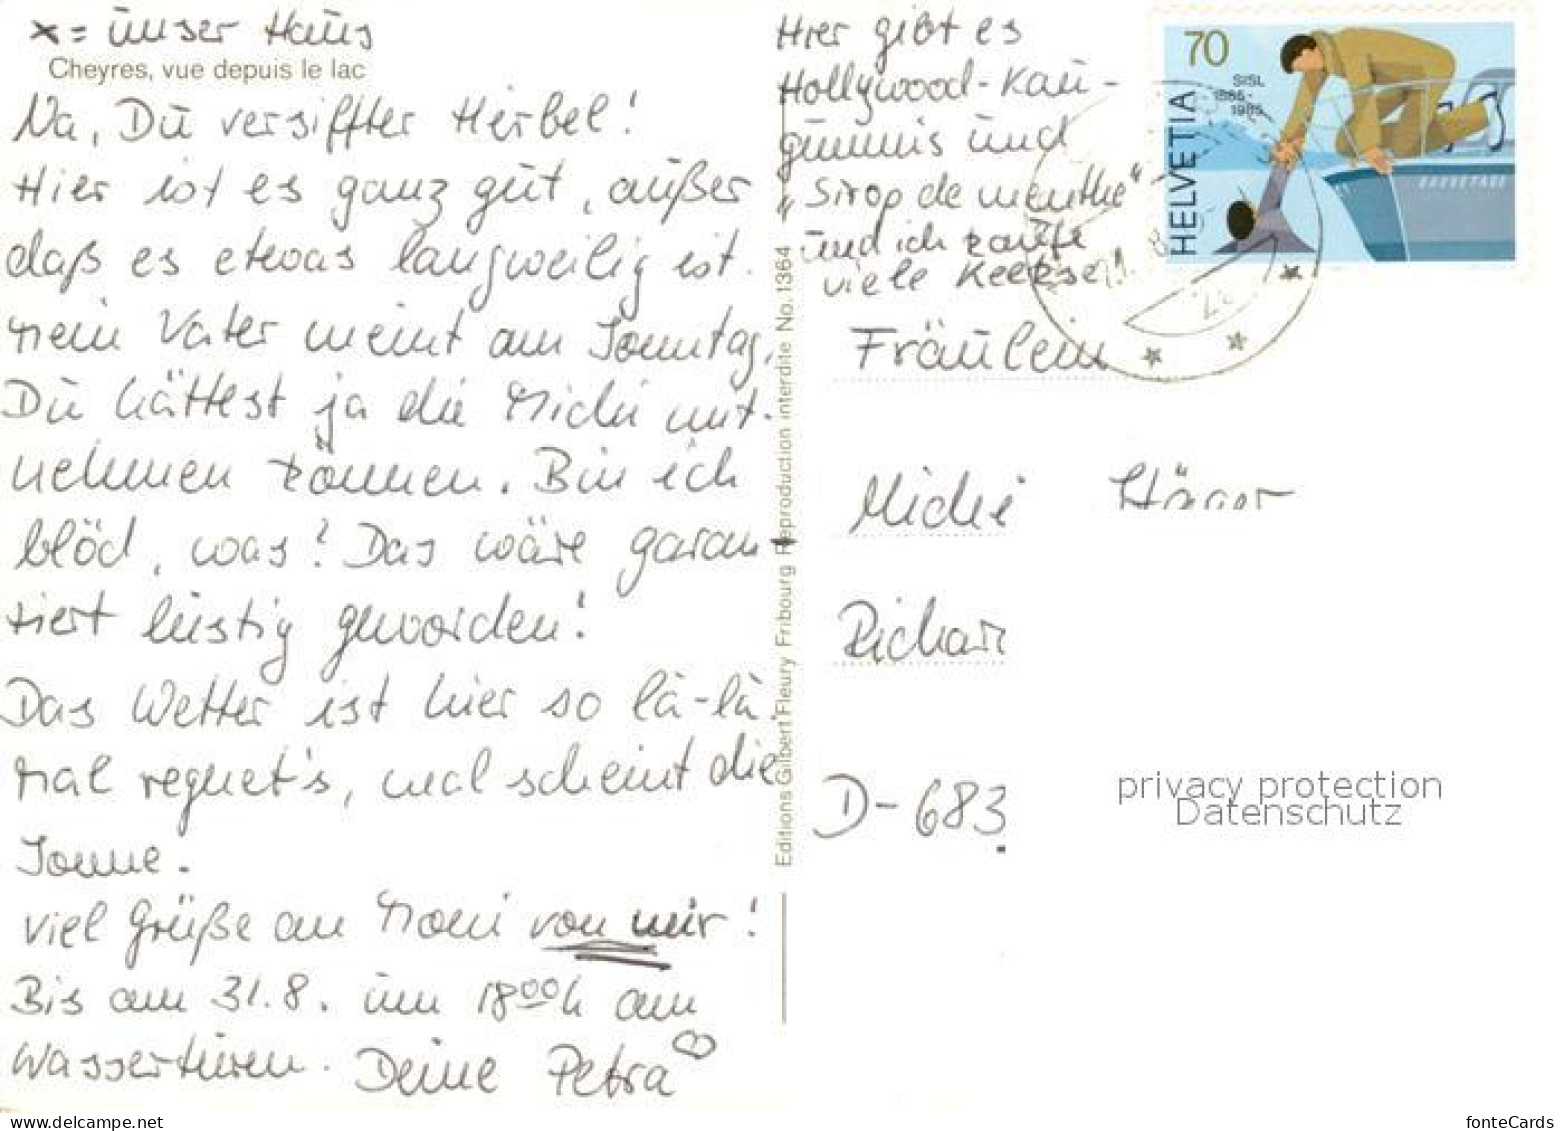 x = unser Haus
Cheyres, vue depuis le lac
Na, Du versiffter Herbel!
Hier ist es ganz gut, außer
daß es etwas langweilig ist.
Mein Vater meint am Sonntag,
Du hättest ja die Michi mit-
nehmen können. Bin ich
blöd, was? Das wäre garan-
tiert lustig geworden!
Das Wetter ist hier so la-la.
Mal regnet's, mal scheint die
Sonne.
Viel Grüße an Moni von mir!
Bis am 31.8. um 18⁰⁰h am
Wasserturm. Deine Petra ♡
Hier gibt es
Hollywood-Kau-
gummis und
„Sirop de menthe"
und ich kaufe
viele Kekse!
Editions Gilbert Fleury Fribourg Reproduction interdite No. 1364
70
SISL
1885-
1985
HELVETIA
Fräulein
Michi
Richar
D-683
privacy protection
Datenschutz
www.delcampe.net
fonteCards